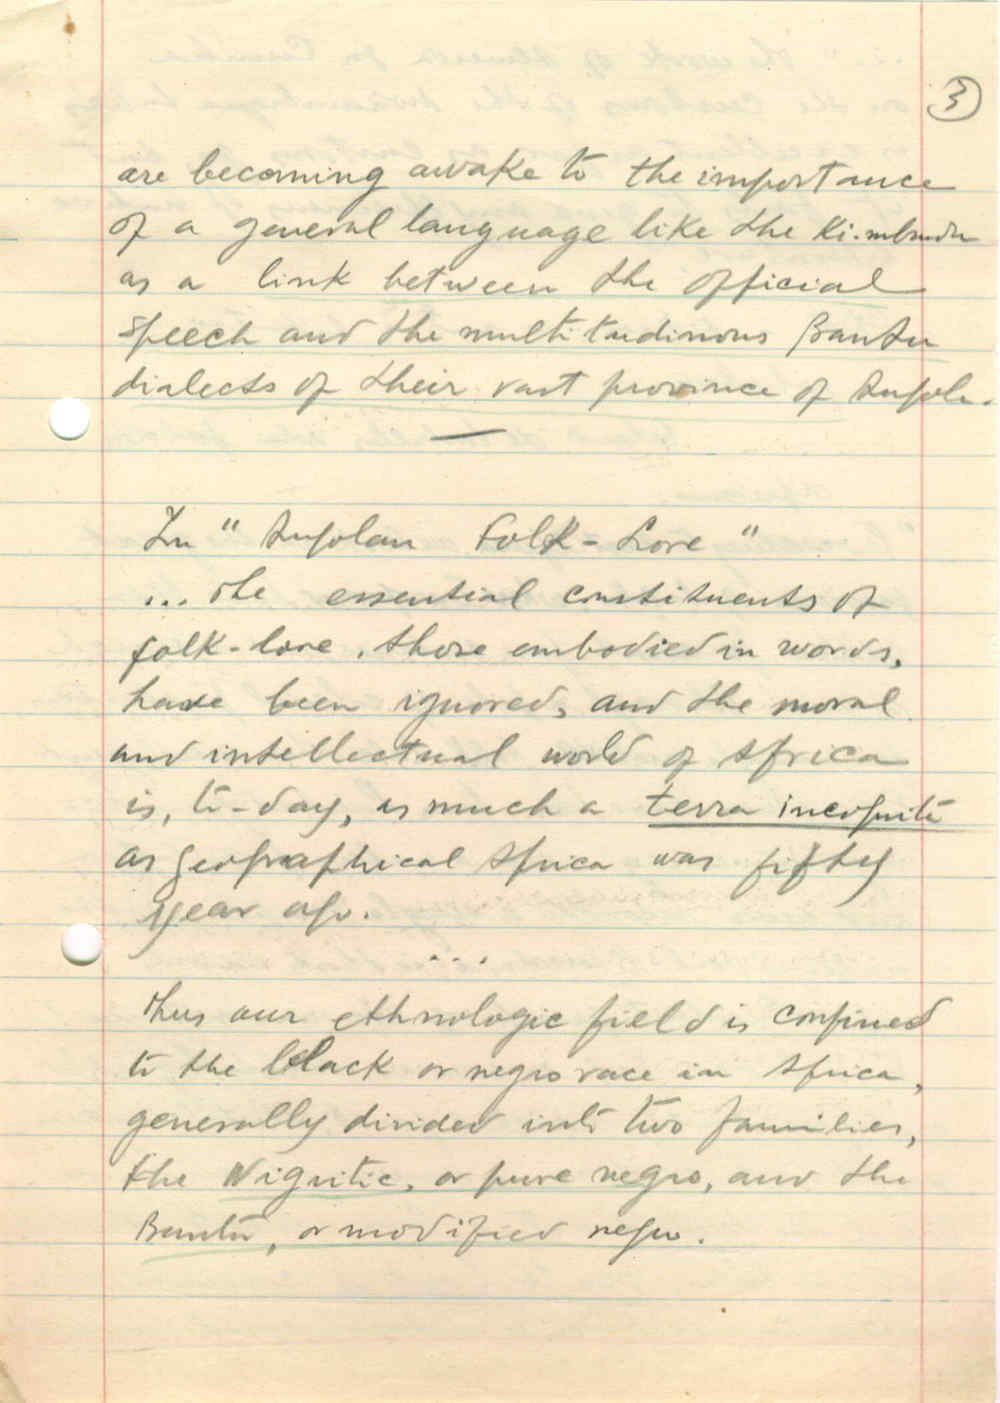 3
are becoming awake to the importance
of a general language like the Ki-mbundu
as a link between the official
speech and the multitudinous Bantu
dialects of their vast province of Angola.
In " Angolan Folk-Lore "
... the essential constituents of
folk-lore, those embodied in words,
have been ignored, and the moral
and intellectual world of Africa
is, to-day, as much a terra incognita
as geographical Africa was fifty
year ago.
...
Thus our ethnologic field is confined
to the black or negro race in Africa,
generally divided into two families,
the Nigritic, or pure negro, and the
Bantu, or modified negro.